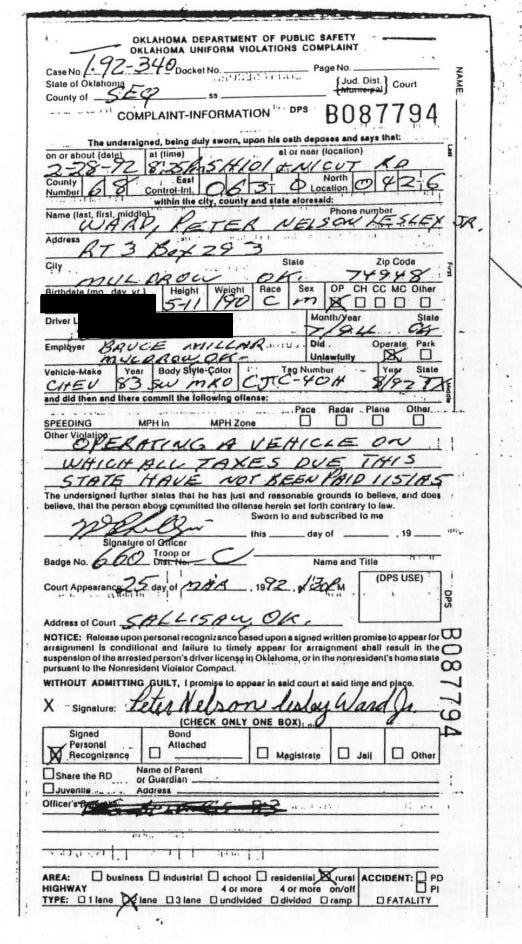 OKLAHOMA DEPARTMENT OF PUBLIC SAFETY
OKLAHOMA UNIFORM VIOLATIONS COMPLAINT
Case No. T.92-340 Docket No. Page No.
State of Oklahoma Jud. Dist.
County of SEQ ss Municipal Court
COMPLAINT-INFORMATION DPS B087794
The undersigned, being duly sworn, upon his oath deposes and says that:
on or about (date) at (time) at or near (location)
NICUT RD
County Number 68 East Control-Int. 063 North Location 0426
within the city, county and state aforesaid:
Name (last, first, middle) Phone number
WARD, PETER NELSON LESLEY JR.
Address
RT 3 Box 293
City State Zip Code
MULDROW OK. 74948
Birthdate (mo. day, yr.) Height Weight Race Sex OP CH CC MC Other
5-11 190 C M X
Driver L Month/Year State
7/94 OK
Employer BRUCE MILLAR Did Unlawfully Operate Park
MULDROW OK X
Vehicle-Make Year Body Style-Color Tag Number Year State
CHEV 83 SW MRO CJC-40H 8/92 TX
and did then and there commit the following offense:
SPEEDING MPH in MPH Zone Pace Radar Plane Other
Other Violation
OPERATING A VEHICLE ON
WHICH ALL TAXES DUE THIS
STATE HAVE NOT BEEN PAID 1151A5
The undersigned further states that he has just and reasonable grounds to believe, and does
believe, that the person above committed the offense herein set forth contrary to law.
Sworn to and subscribed to me
this day of , 19
Signature of Officer
Badge No. 660 Troop or Dist. No. C Name and Title
Court Appearance 25 day of MAR 1992, 1:30 P M (DPS USE)
Address of Court SALLISAW, OK.
NOTICE: Release upon personal recognizance based upon a signed written promise to appear for
arraignment is conditional and failure to timely appear for arraignment shall result in the
suspension of the arrested person's driver license in Oklahoma, or in the nonresident's home state
pursuant to the Nonresident Violator Compact.
WITHOUT ADMITTING GUILT, I promise to appear in said court at said time and place.
X Signature: Peter Nelson Lesley Ward Jr.
(CHECK ONLY ONE BOX)
Signed Personal Recognizance X Bond Attached Magistrate Jail Other
Share the RD Name of Parent or Guardian
Juvenile Address
Officer's
AREA: business industrial school residential X rural ACCIDENT: PD
HIGHWAY 4 or more 4 or more on/off PI
TYPE: 1 lane X 2 lane 3 lane undivided divided ramp FATALITY
NAME
Last
First
Middle
DPS
B087794